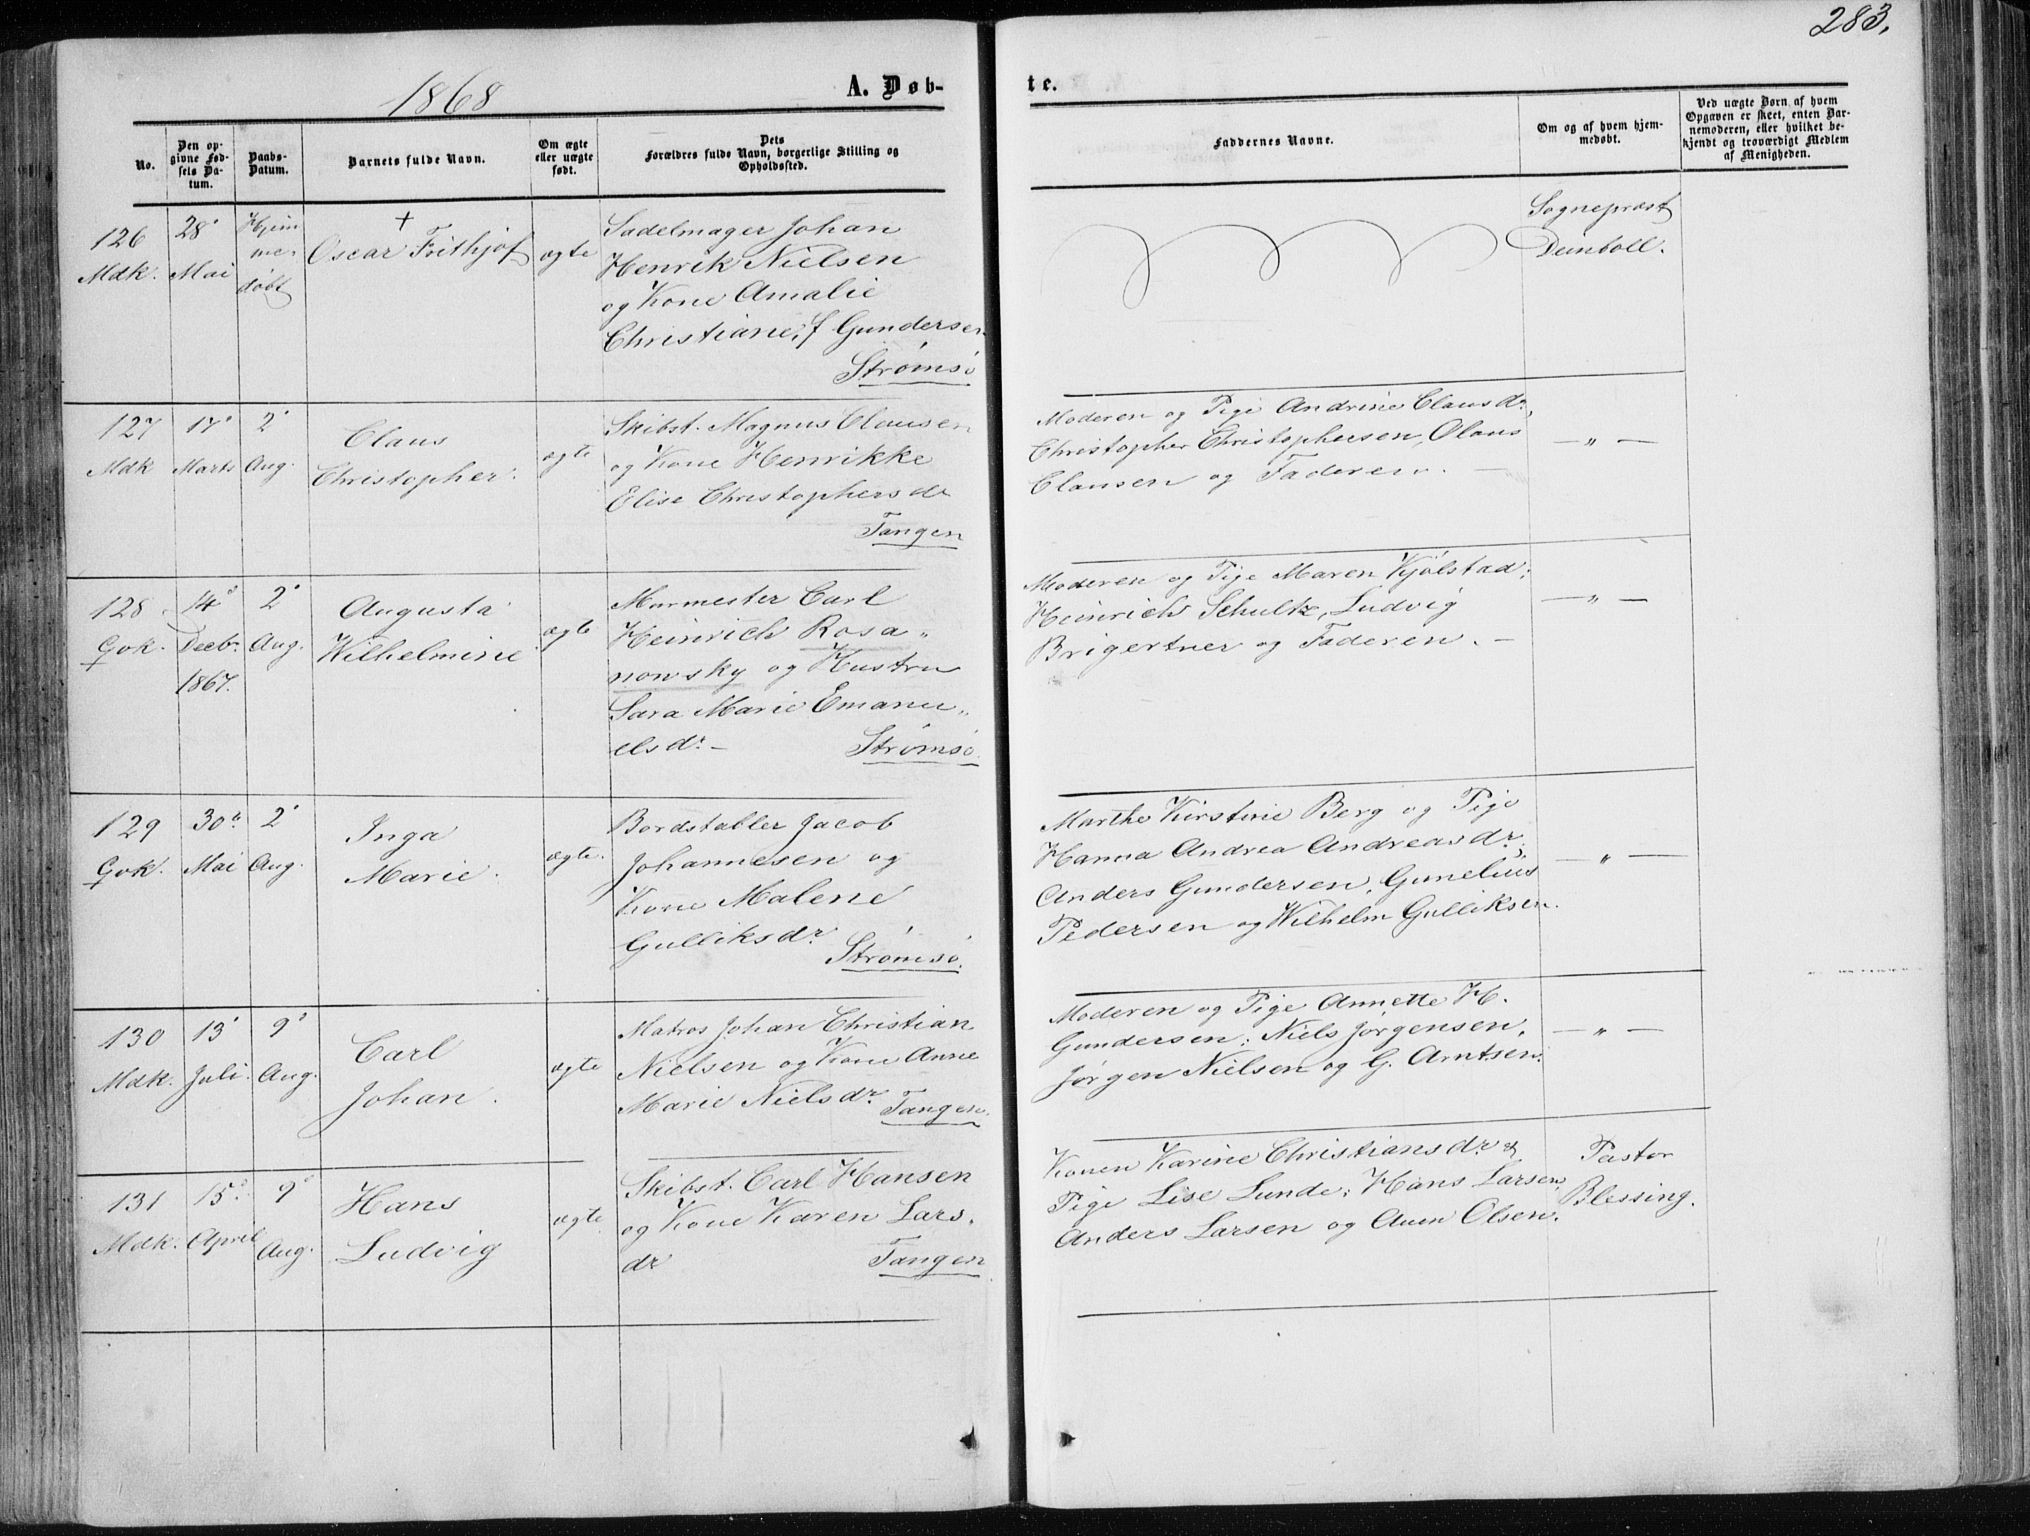 283.
1868
A. Døb-
te.
No.
Den op-
givne Fød-
sels Da-
tum.
Daabs-
Datum.
Barnets fulde Navn.
Om ægte
eller uægte
født.
Dets
Forældres fulde Navn, borgerlige Stilling og
Opholdssted.
Faddernes Navne.
Om og af hvem hjem-
medøbt.
Ved uægte Børn af hvem
Opgaven er skeet, enten Bar-
nemoderen, eller hvilket be-
kjendt og troværdigt Medlem
af Menigheden.
126
Mdk.
28'
Mai
Hjem
me-
døbt
+
Oscar Frithjof
ægte
Sadelmager Johan
Henrik Nielsen
og Kone Amalie
Christiane, f Gundersen
Strømsø
Sognepræst
Deinboll.
127
Mdk
17'
Marts
2'
Aug.
Claus
Christopher.
ægte
Skibst. Magnus Clausen
og Kone Henrikke
Elise Christophersdr
Tangen
Moderen og Pige Andrine Clausdr,
Christopher Christophersen, Olaus
Clausen og Faderen. —
— " —
128
Qvk.
14'
Decbr.
1867.
2'
Aug.
Augusta
Wilhelmine
ægte
Murmester Carl
Heinrich Rosa„
nowsky og Hustru
Sara Marie Emanu„
elsdr. —
Strømsø.
Moderen og Pige Maren Kjölstad;
Heinrich Schultz, Ludvig
Brigertner og Faderen. —
— " —
129
Qvk.
30'
Mai
2'
Aug.
Inga
Marie.
ægte.
Bordstabler Jacob
Johannesen og
Kone Malene
Gulliksdr.
Strømsø.
Marthe Kirstine Berg og Pige
Hanna Andrea Andreasdr;
Anders Gundersen, Gunelius
Pedersen og Wilhelm Gulliksen.
— " —
130
Mdk.
13'
Juli.
9'
Aug.
Carl
Johan.
ægte
Matros Johan Christian
Nielsen og Kone Anne
Marie Nielsdr.
Tangen.
Moderen og Pige Annette H.
Gundersen; Niels Jørgensen,
Jørgen Nielsen og G. Arntsen.
— " —
131
Mdk.
15'
April
9'
Aug.
Hans
Ludvig
ægte
Skibst. Carl Hansen
og Kone Karen Lars„
dr
Tangen
Konen Karine Christiansdr &
Pige Lise Lunde; Hans Larsen,
Anders Larsen og Auen Olsen.
Pastor
Blessing.